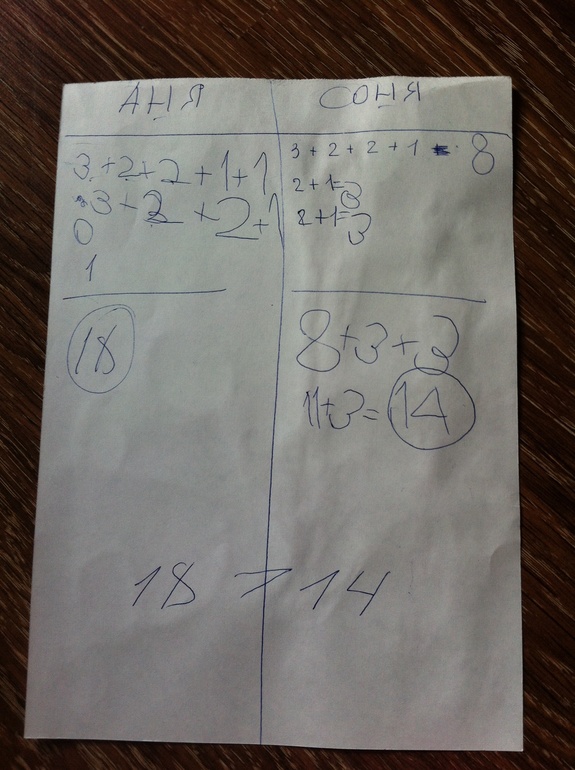 АНЯ
3+2+2+1+1
3+2+2+1
0
1
18
СОНЯ
3+2+2+1=8
2+1=3
2+1=3
8+3+3
11+3=14
18>14